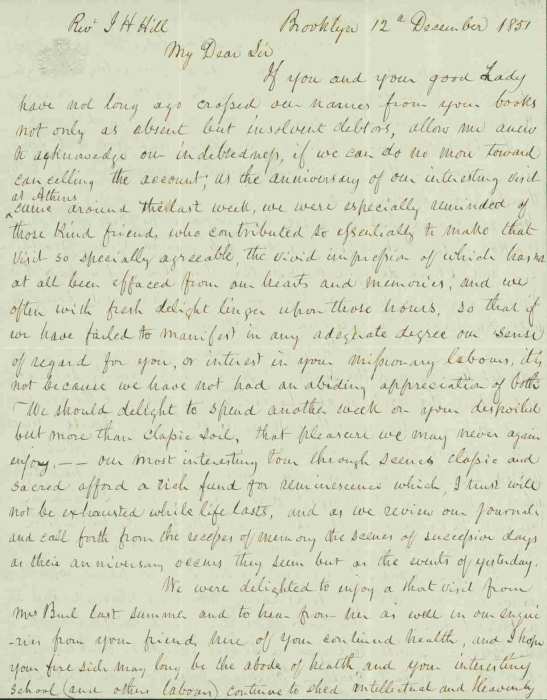 Revd J H Hill Brooklyn 12th December 1851
My Dear Sir
If you and your good Lady
have not long ago crossed our names from your books
not only as absent but insolvent debtors, allow me anew
to acknowledge our indebtedness, if we can do no more toward
cancelling the account; as the anniversary of our interesting visit
at Athens
came around the last week, we were especially reminded of
those kind friends who contributed so essentially to make that
visit so specially agreeable, the vivid impression of which has not
at all been effaced from our hearts and memories; and we
often with fresh delight linger upon those hours, so that if
we have failed to manifest in any adequate degree our sense
of regard for you, or interest in your missionary labours, it is
not because we have not had an abiding appreciation of both
- We should delight to spend another week on your despoiled
but more than classic soil, that pleasure we may never again
enjoy, -- our most interesting tour through scenes classic and
sacred afford a rich fund for reminescence which, I trust will
not be exhausted while life lasts, and as we review our Journals
and call forth from the recesses of memory the scenes of successive days
as their anniversary occurs they seem but as the events of yesterday.
We were delighted to enjoy a short visit from
Mrs last summer and to hear from her as well in our enqui
-ries from your friends here of your continued health, and I hope
your fire side may long be the abode of health and your interesting
School (and others labours) continue to shed intellectual and Heavenly